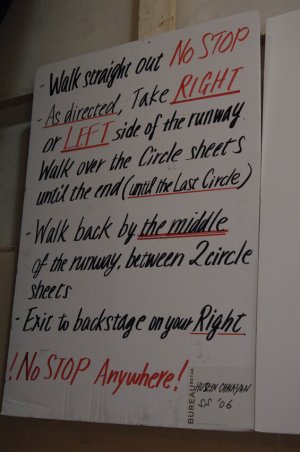 - Walk straight out NO STOP
- As directed, Take RIGHT
or LEFT side of the runway
Walk over the Circle sheets
until the end (until the Last Circle)
- Walk back by the middle
of the runway, between 2 circle
sheets
- Exit to backstage on your Right
! No STOP Anywhere!
BUREAU BETAK
HUSSEIN CHALAYAN
SS '06